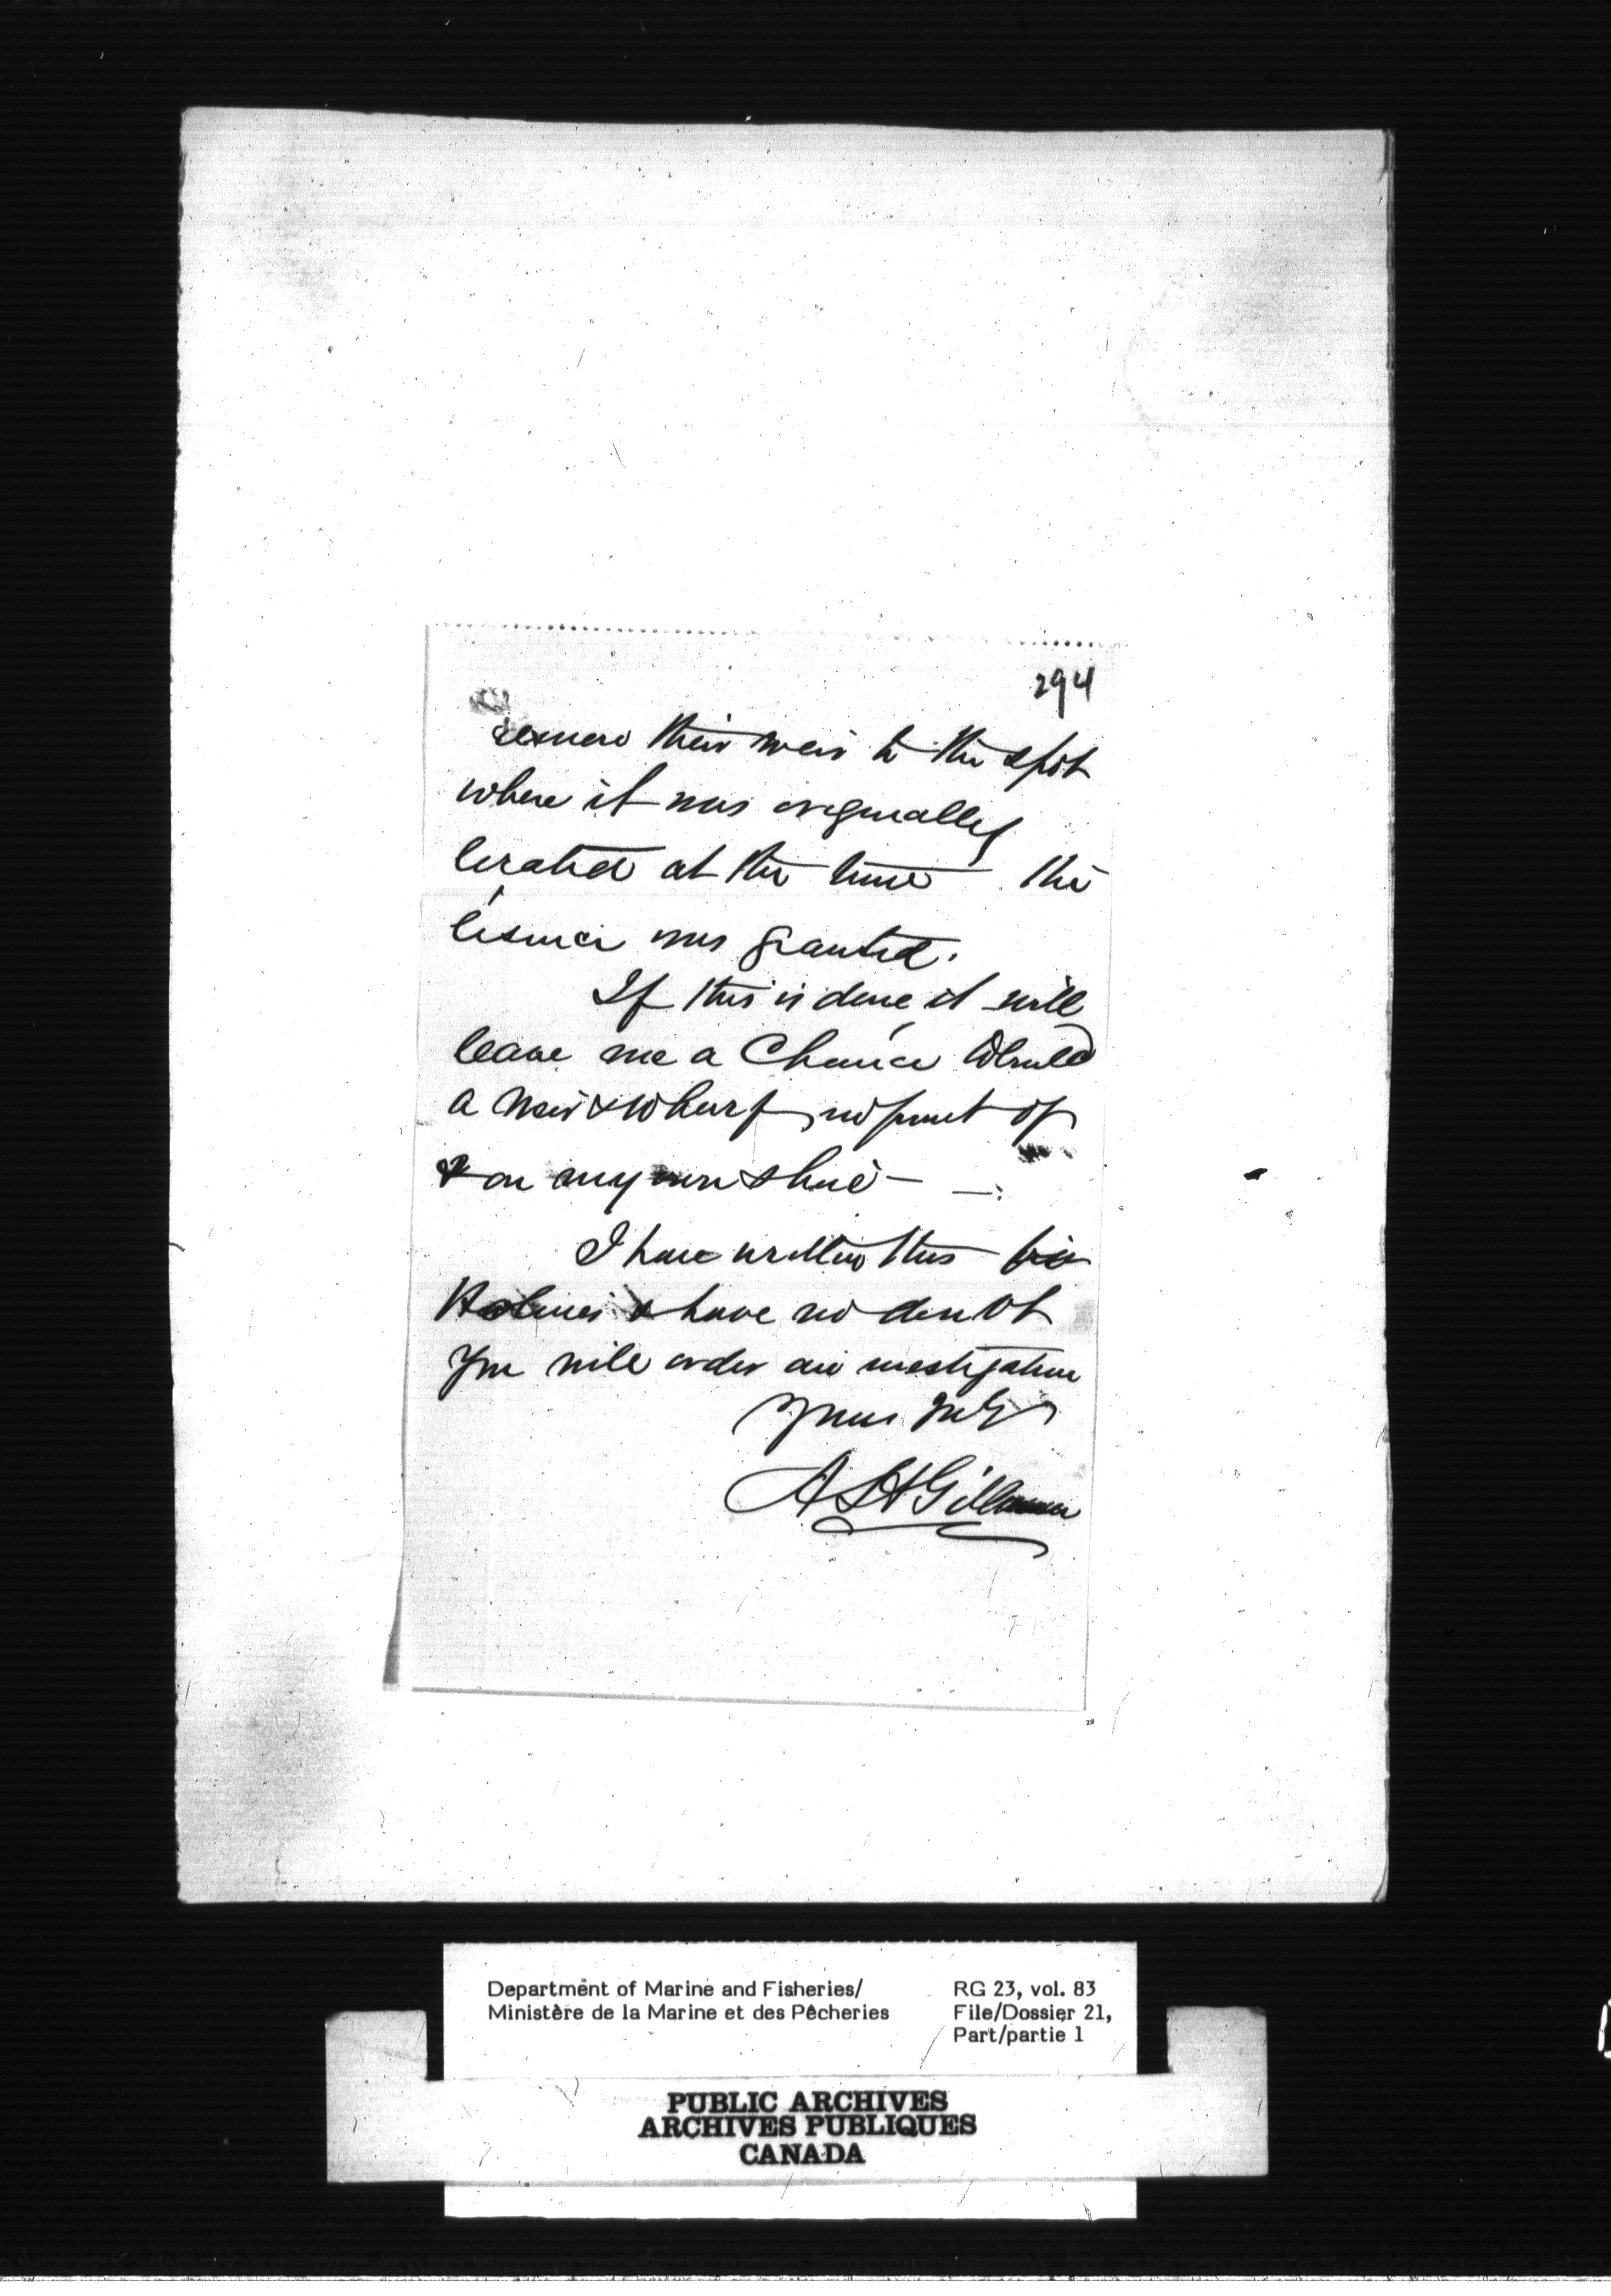 294
remove their weir to the spot
where it was originally
located at the time the
lisence was granted.
If this is done it will
leave me a Chance to build
a weir & wharf in front of
& on my own shore —
I have written this
Holmes & have no doubt
you will order an investigation
Yours truly
A L H Gillman
Department of Marine and Fisheries/
Ministère de la Marine et des Pêcheries
RG 23, vol. 83
File/Dossier 21,
Part/partie 1
PUBLIC ARCHIVES
ARCHIVES PUBLIQUES
CANADA